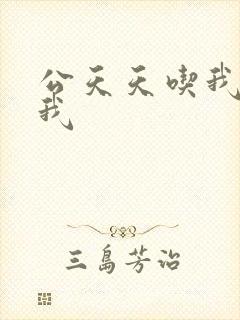 公天天喫我
我
三島芳治